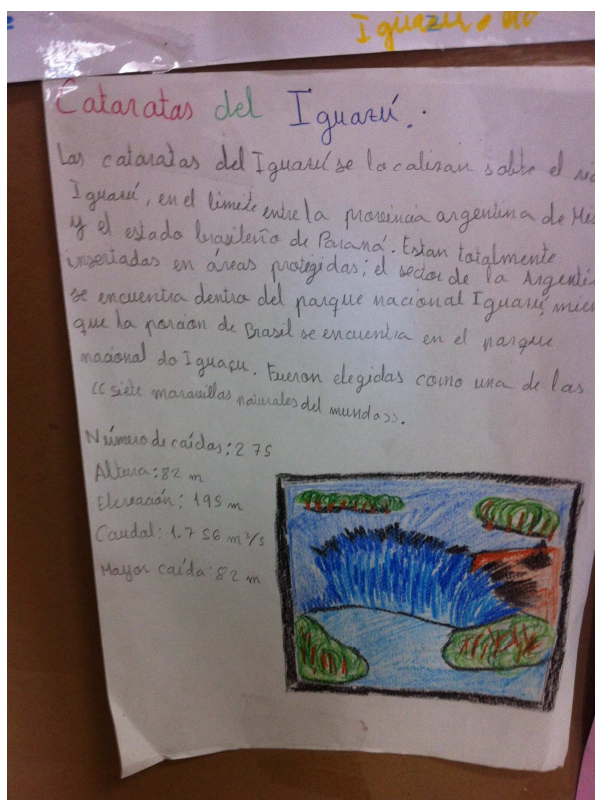 Iguazu
Cataratas del Iguazú.
Las cataratas del Iguazú se localizan sobre el río
Iguazú, en el limite entre la provincia argentina de
y el estado brasileño de Paraná. Estan totalmente
insertadas en áreas protegidas; el sector de la Argenti
se encuentra dentro del parque nacional Iguazú, mien
que la porcion de Brasil se encuentra en el parque
nacional do Iguaçu. Fueron elegidas como una de las
<<siete maravillas naturales del mundo>>.
Número de caídas: 275
Altura: 82 m
Elevación: 195 m
Caudal: 1.756 m³/s
Mayor caída: 82 m